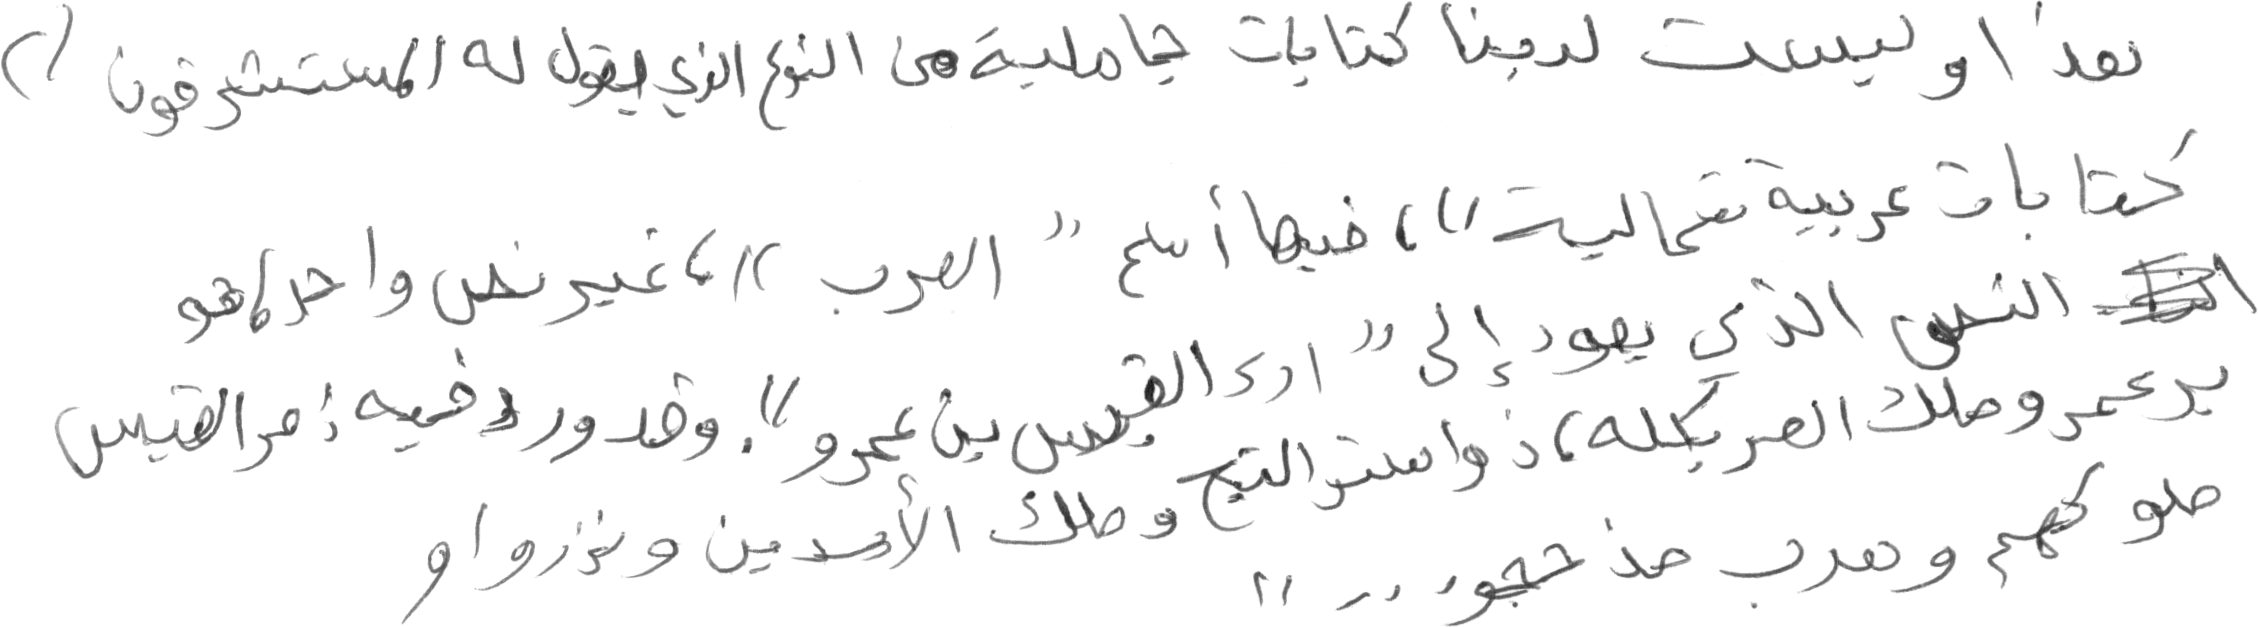 هذا وليست لدينا كتابات جاهلية من النوع الذي يقول له المستشرقون "
كتابات عربية شمالية"، فيها أسم "العرب"، غير نص واحد، هو
النص الذي يعود إلى "امرئ القيس بن عمرو". وقد ورد فيه: مر القيس
بر عمرو ملك العربكله، ذو استر التج وملك الأسدين ونزروا و
ملوكهم وهرب مذحجو.. "